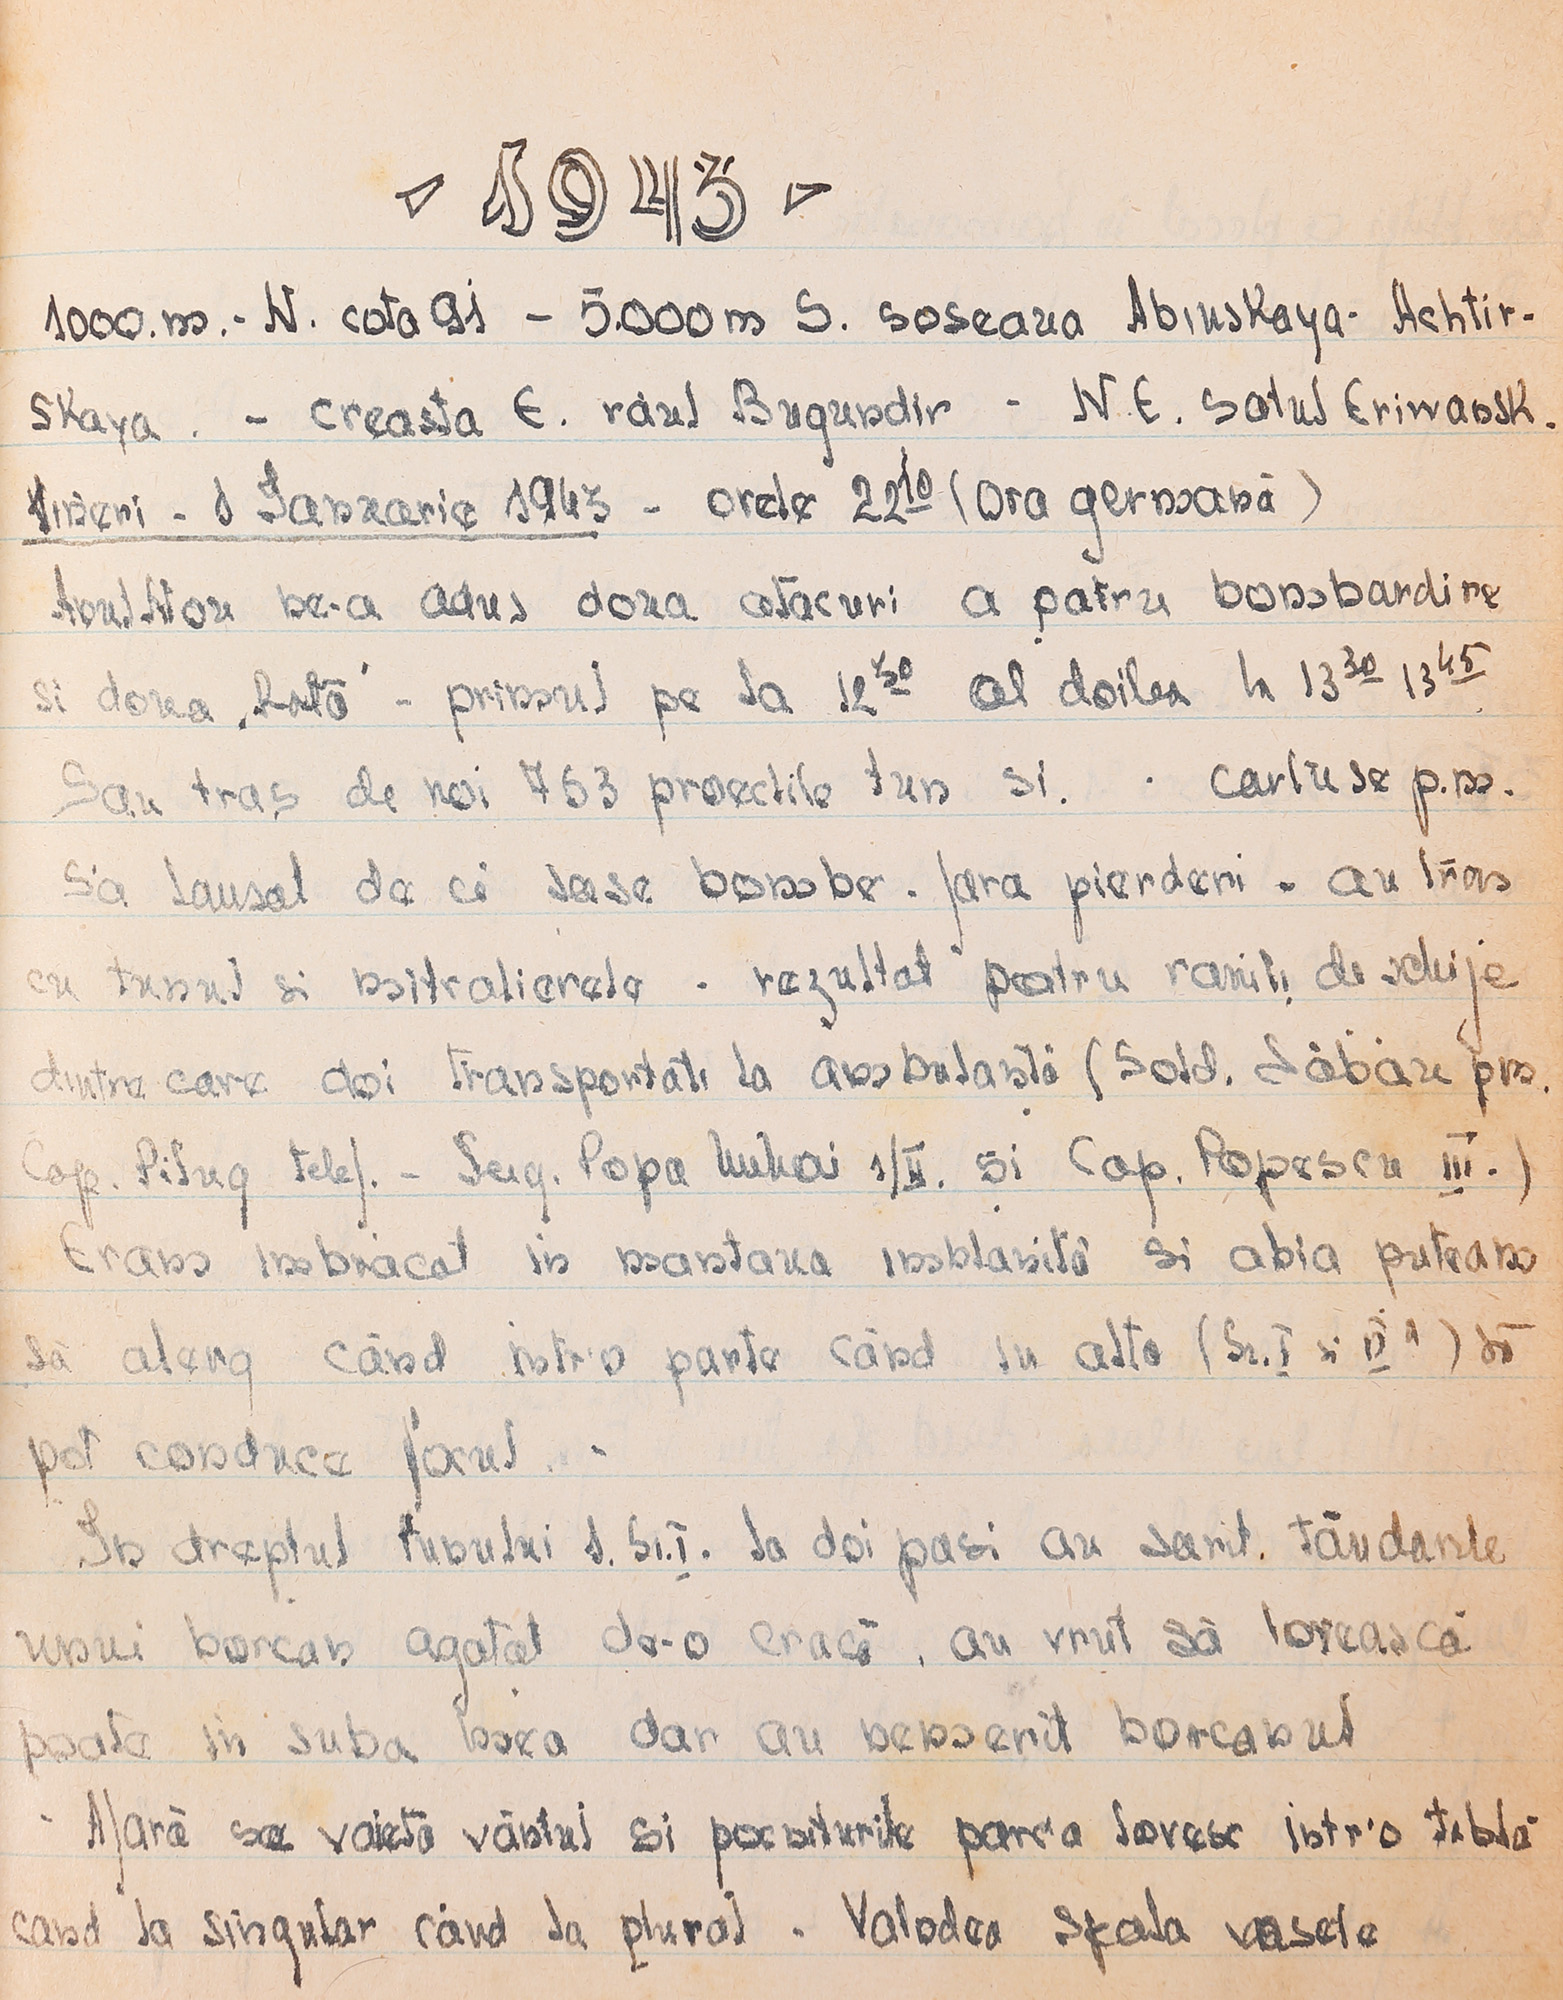 - 1943 -
1000.m.- N. cota 91 - 5.000m S. soseaua Abinskaya- Achtir-
skaya. - creasta E. râul Bugundir - N.E. satul Eriwansk.
Vineri - 1 Ianuarie 1943 - orele 22 10 (ora germană)
Anul Nou ne-a adus doua atacuri a patru bombardire
si doua „Rată" - primul pe la 12 30 al doilea la 13 30 13 45
Sau tras de noi 763 proectile tun si . cartuse p.m.
S'a lansat de ei sase bombe. fara pierderi - au tras
cu tunul si mitralierele - rezultat patru raniti de schije
dintre care doi transportati la ambulantă (Sold. Săbău pm.
Cap. Pilug telef. - Serg. Popa Mihai 1/II. si Cap. Popescu III.)
Eram imbrăcat in mantaua imblanită si abia puteam
să alerg când intr'o parte când in alta (Sc. I si II) să
pot conduce focul. -
In dreptul tunului 1. Sc. I. la doi pasi au sarit. tăndarile
unui borcan agatat de-o cracă, au vrut să lovească
poate in suba mea dar au nemerit borcanul
- Afară se vaietă vântul si pocniturile parc'a lovesc intr'o tablă
cand la singular când la plural - Valodea spala vasele